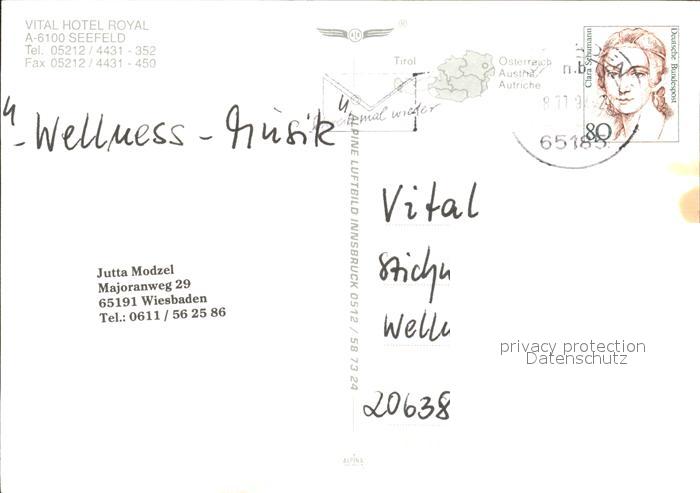 VITAL HOTEL ROYAL
A-6100 SEEFELD
Tel. 05212 / 4431 - 352
Fax 05212 / 4431 - 450
Tirol
Österreich
Austria
Autriche
Clara Schumann
Deutsche Bundespost
80
65185
mal wieder
- Wellness - Musik
ALPINE LUFTBILD INNSBRUCK 0512 / 58 73 24
Jutta Modzel
Majoranweg 29
65191 Wiesbaden
Tel.: 0611 / 56 25 86
Vital
Stichw
Welln
20638
privacy protection
Datenschutz
ALPINA